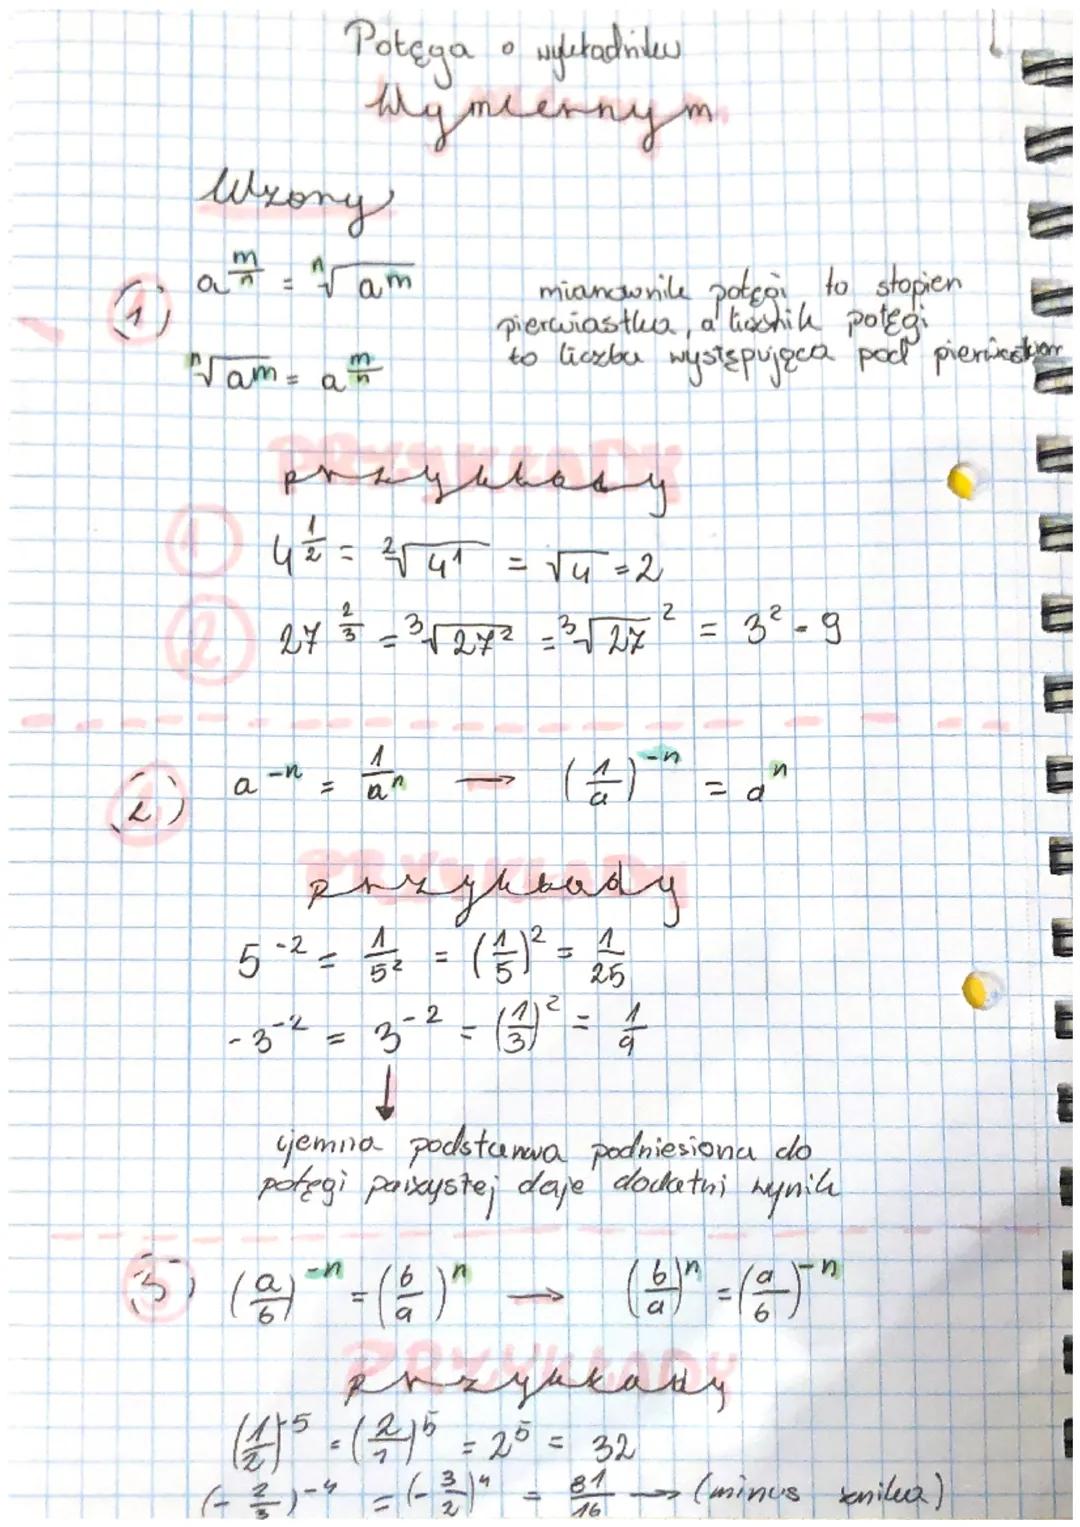 Potęga o wykładniku
Wymiernym
Wzory
1) a^(m/n) = ⁿ√(a^m)
ⁿ√(a^m) = a^(m/n)
mianownik potęgi to stopien
pierwiastka, a licznik potęgi
to liczba występująca pod pierwiastkiem
PRZYKŁADY
przykłady
1 4^(1/2) = ²√(4^1) = √4 = 2
2 27^(2/3) = ³√(27²) = ³√27² = 3² = 9
2) a^(-n) = 1/a^n → (1/a)^(-n) = a^n
PRZYKŁADY
przykłady
5^(-2) = 1/5² = (1/5)² = 1/25
-3^(-2) = 3^(-2) = (1/3)² = 1/9
↓
ujemna podstawa podniesiona do
potęgi parzystej daje dodatni wynik
3) (a/b)^(-n) = (b/a)^n → (b/a)^n = (a/b)^(-n)
PRZYKŁADY
przykłady
(1/2)^(-5) = (2/1)^5 = 2^5 = 32
(-2/3)^(-4) = (-3/2)^4 = 81/16 → (minus znika)